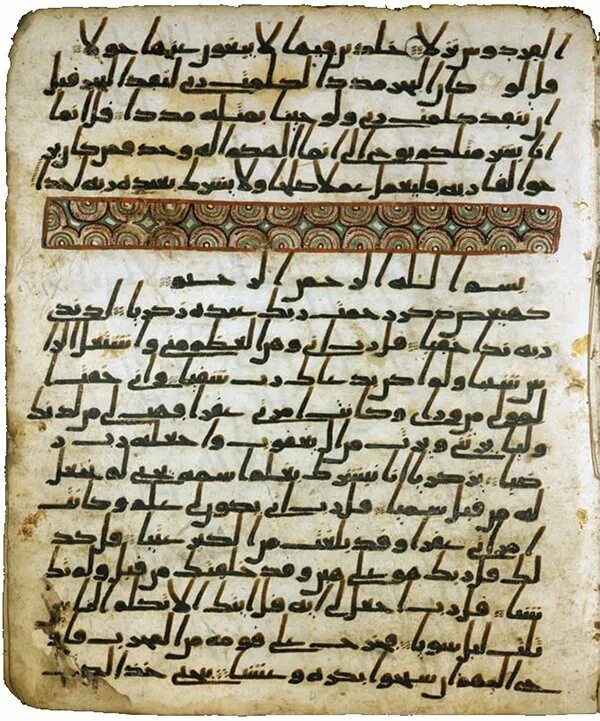 الفردوس نزلا خلدين فيها لا يبغون عنها حولا
قل لو كان البحر مددا لكلمت ربي لنفد البحر قبل
ان تنفد كلمت ربي ولو جينا بمثله مددا قل انما
انا بشر مثلكم يوحي الي انما الهكم اله وحد فمن كان ير
جوا لقا ربه فليعمل عملا صلحا ولا يشرك بعبده ربه احدا
بسم الله الرحمن الرحيم
كهيعص ذكر رحمت ربك عبده زكريا اذ ندي
ربه ندا خفيا قل رب اني وهن العظم مني واشتعل الرا
س شيبا ولم اكن بدعاك رب شقيا واني خفت ا
لمولي من وراي وكانت امراتي عقرا فهب لي من لدنك
وليا يرثني ويرث من ال يعقوب واجعله رب ر
ضيا يزكريا انا نبشرك بغلم اسمه يحيي لم نجعل
له من قبل سميا قل رب اني يكون لي غلم وكانت
امراتي عقرا وقد بلغت من الكبر عتيا قل كذ
لك قل ربك هو علي هين وقد خلقتك من قبل ولم تك
شيا قل رب اجعل لي ايه قل ايتك الا تكلم النا
س ثلث ليل سويا فخرج علي قومه من المحرب فاو
حي اليهم ان سبحوا بكره وعشيا ييحيي خذ الكتب